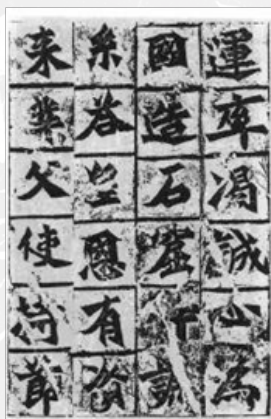 運率渴誠心為
國造石窟
系答皇恩有資
来業父使持節